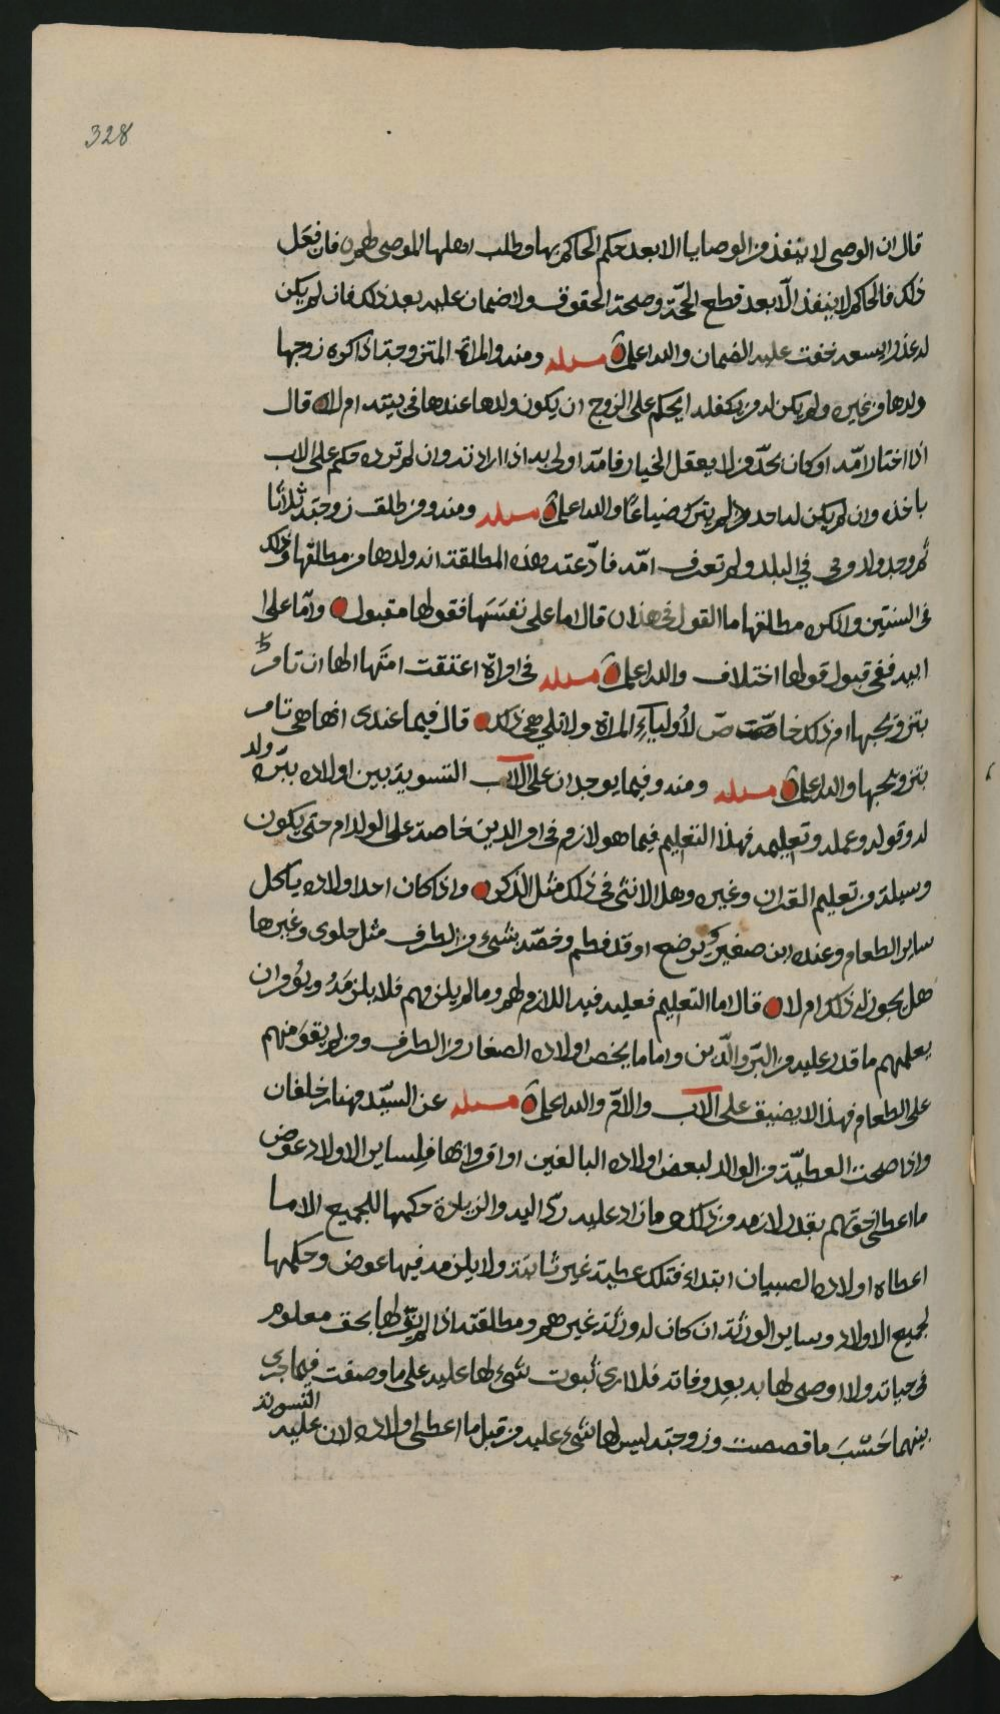 328
قال ان الوصي لا ينفذ من الوصايا الا بعد حكم الحاكم بها وطلب اهلها الموصى لهم فان فعل
ذلك فالحاكم لا ينفذ الّا بعد قطع الحجّة وصحة الحقوق ولا ضمان عليه بعد ذلك فان لم يكن
له عذر يسعه خفت عليه الضمان والله اعلم مسئله ومنه والمراة المتزوجة اذا كره زوجها
ولدها من غيره ولم يكن له من يكفله ايحكم على الزوج ان يكون ولدها عندها في بيته ام لا قال
اذا اختار امّه او كان بحدّ من لا يعقل الخيار فامّه اولى به اذا ارادته وان لم ترده حكم على الاب
باخذه وان لم يكن له احد لم يترك ضياعًا والله اعلم مسئله ومنه ومن طلق زوجته ثلاثا
ثم وجد ولد في البلد ولم تعرف امّه فادّعته هذه المطلقة انه ولدها من مطلقها وذلك
في السنتين وانكره مطلقها ما القول في هذا قال اما على نفسها فقولها مقبول وامّا على
ابيه ففي قبول قولها اختلاف والله اعلم مسئله في امراة اعتقت امتها الها ان تامر
بتزويجها ام ذلك خاص لأولياء المراة ولا تلي هي ذلك قال فيما عندي انها هي تامر
بتزويجها والله اعلم مسئله ومنه وفيما يوجد ان على الاب التسوية بين اولاده ببرّه ولد
له وقوله وعمله وتعليمه فهذا التعليم فيما هو لازم في امر الدين خاصة على الولد ام حتى يكون
وسيلة من تعليم القران وغيره وهل الانثى في ذلك مثل الذكر واذا كان احد اولاده ياكل
ساير الطعام وعنده ابن صغير يرضع او قد فطم وخصّه بشيء من الطرف مثل حلوى وغيرها
هل يجوز له ذلك ام لا قال اما التعليم فعليه فيه اللازم لهم وما لم يلزمهم فلا يلزمه ويؤمر ان
يعلمهم ما قدر عليه من البرّ والدّين واما ما يخص اولاده الصغار من الطرف ومن لم يقو منهم
على الطعام فهذا لا يضيق على الاب والامّ والله اعلم مسئله عن السيّد مهنا بن خلفان
واذا صحت العطيّة من الوالد لبعض اولاده البالغين او اقر وانها فلساير الاولاد عوض
ما اعطى اخوتهم بقدر لازمه من ذلك وما زاد عليه ردّ اليه والزيادة حكمها للجميع الا ما
اعطاه اولاده الصبيان ابتداء فتلك عطية غير ثابتة ولا يلزمه فيها عوض وحكمها
لجميع الاولاد وساير الورثة ان كان له ورثة غيرهم ومطلقته اذا لم يقرّ لها بحق معلوم
في حياته ولا اوصى لها به بعد وفاته فلا ارى ثبوت شيء لها عليه على ما وصفت فيما جرى
بينهما حَسْبَ ما قصصت وزوجته ليس لها شيء عليه من قبل ما اعطى اولاده لان عليه
التسوية